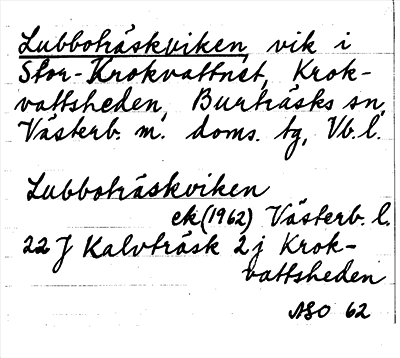 Lubboträskviken, vik i
Stor-Krokvattnet, Krok-
vattsheden, Burträsks sn,
Västerb. m. doms. tg, Vb. l.
Lubboträskviken
ek (1962) Västerb. l.
22 J Kalvträsk 2 j Krok-
vattsheden
ASO 62